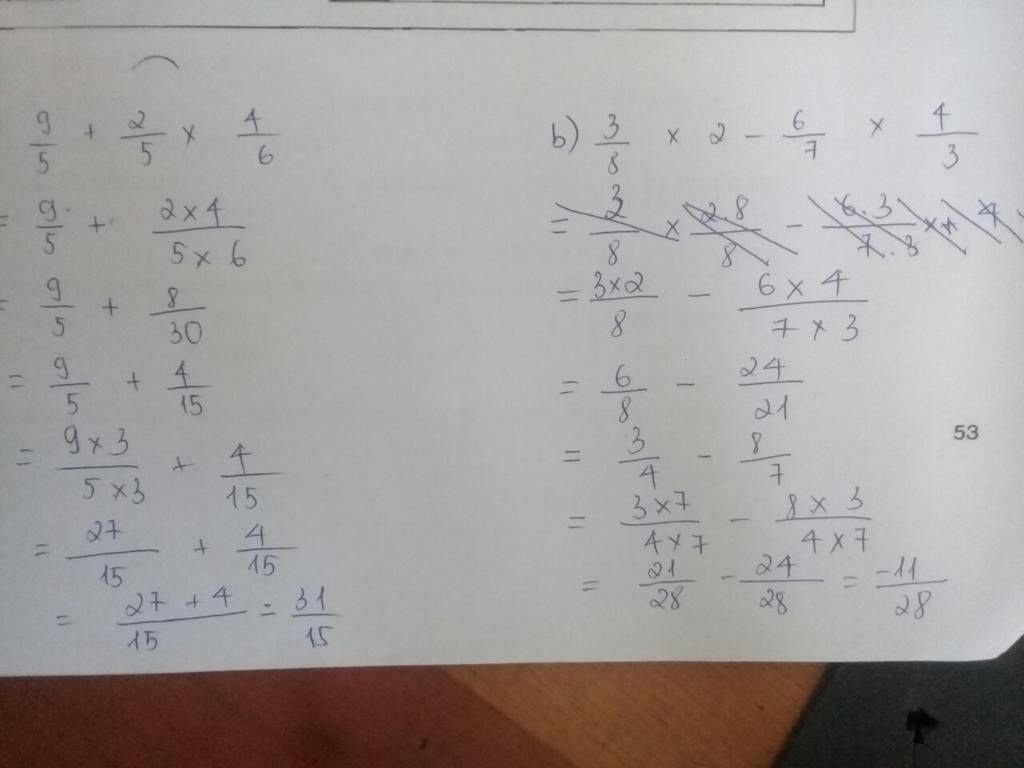 9/5 + 2/5 × 4/6
= 9/5 + 2×4/5×6
= 9/5 + 8/30
= 9/5 + 4/15
= 9×3/5×3 + 4/15
= 27/15 + 4/15
= 27+4/15 = 31/15
b) 3/8 × 2 - 6/7 × 4/3
= 3/8 × 2.8/8 - 6.3/7.3 × 4
= 3×2/8 - 6×4/7×3
= 6/8 - 24/21
= 3/4 - 8/7
= 3×7/4×7 - 8×3/4×7
= 21/28 - 24/28 = -11/28
53